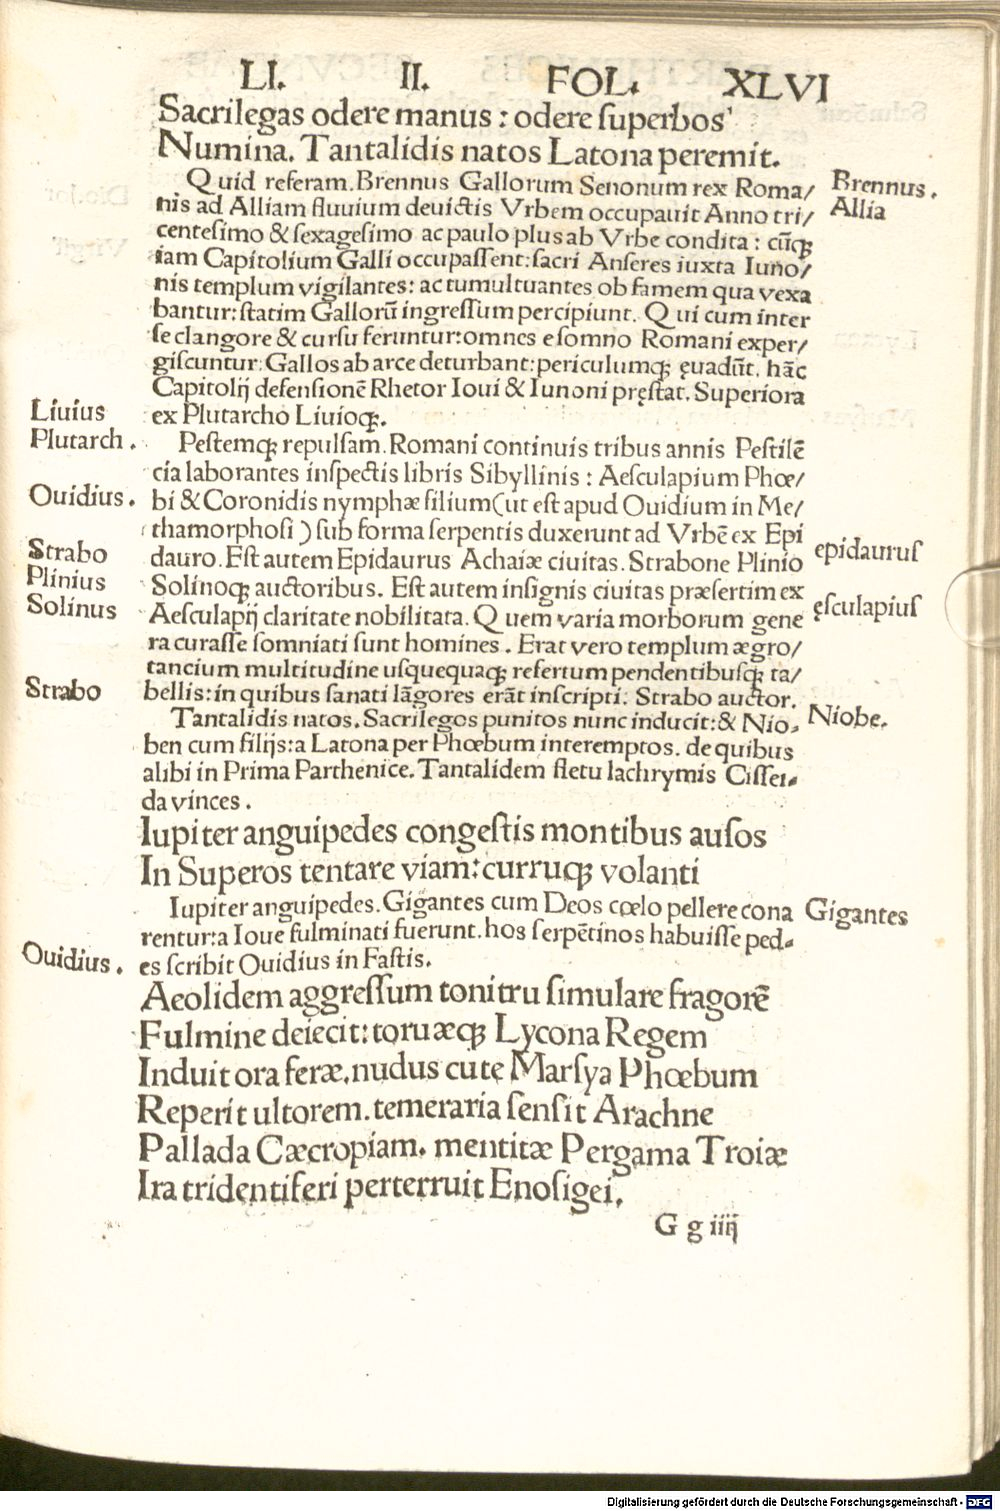 LI. II. FOL. XLVI
Sacrilegas odere manus : odere ſuperbos
Numina. Tantalidis natos Latona peremit.
Quid referam. Brennus Gallorum Senonum rex Roma/
Brennus.
nis ad Alliam fluuium deuictis Vrbem occupauit Anno tri/
Allia
centeſimo & ſexageſimo ac paulo plus ab Vrbe condita : cũqꝫ
iam Capitolium Galli occupaſſent: ſacri Anſeres iuxta Iuno/
nis templum vigilantes: ac tumultuantes ob famem qua vexa
bantur: ſtatim Gallorũ ingreſſum percipiunt. Qui cum inter
ſe clangore & curſu feruntur: omnes e ſomno Romani exper/
giſcuntur: Gallos ab arce deturbant: periculumqꝫ ęuadũt. hãc
Capitolij defenſionẽ Rhetor Ioui & Iunoni pręſtat. Superiora
ex Plutarcho Liuioqꝫ.
Liuius
Plutarch.
Peſtemqꝫ repulſam. Romani continuis tribus annis Peſtilẽ
cia laborantes inſpectis libris Sibyllinis : Aeſculapium Phœ/
bi & Coronidis nymphæ filium (ut eſt apud Ouidium in Me/
Ouidius.
thamorphoſi) ſub forma ſerpentis duxerunt ad Vrbẽ ex Epi
dauro. Eſt autem Epidaurus Achaiæ ciuitas. Strabone Plinio
Strabo
epidaurus
Solinoqꝫ auctoribus. Eſt autem inſignis ciuitas præſertim ex
Plinius
Aeſculapij claritate nobilitata. Quem varia morborum gene
Solinus
ęſculapius
ra curaſſe ſomniati ſunt homines. Erat vero templum ægro/
tancium multitudine uſquequaqꝫ refertum pendentibuſqꝫ ta/
bellis: in quibus ſanati lãgores erãt inſcripti. Strabo auctor.
Strabo
Tantalidis natos. Sacrilegos punitos nunc inducit: & Nio-
Niobe.
ben cum filijs: a Latona per Phœbum interemptos. de quibus
alibi in Prima Parthenice. Tantalidem fletu lachrymis Ciſſei-
da vinces.
Iupiter anguipedes congeſtis montibus auſos
In Superos tentare viam: curruqꝫ volanti
Iupiter anguipedes. Gigantes cum Deos cœlo pellere cona
Gigantes
rentur: a Ioue fulminati fuerunt. hos ſerpẽtinos habuiſſe ped-
es ſcribit Ouidius in Faſtis.
Ouidius.
Aeolidem aggreſſum tonitru ſimulare fragorẽ
Fulmine deiecit: toruæqꝫ Lycona Regem
Induit ora feræ. nudus cute Marſya Phœbum
Reperit ultorem. temeraria ſenſit Arachne
Pallada Cæcropiam. mentitæ Pergama Troiæ
Ira tridentiferi perterruit Enoſigei.
G g iiij
Digitalisierung gefördert durch die Deutsche Forschungsgemeinschaft - DFG